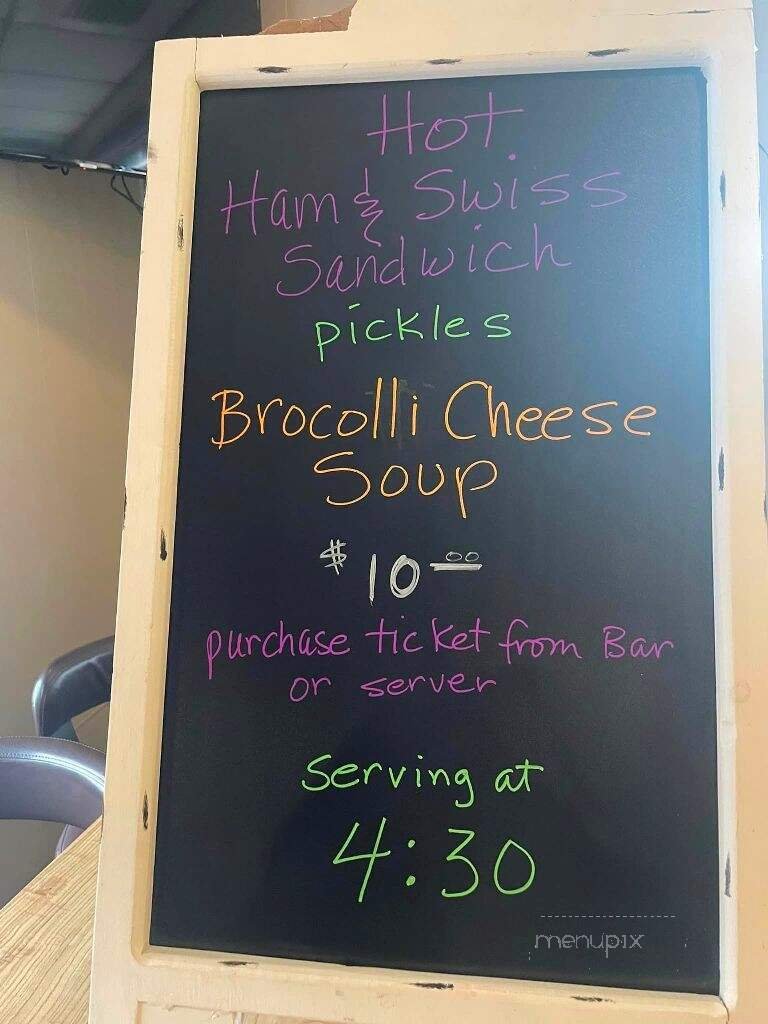 Hot
Ham & Swiss
Sandwich
pickles
Brocolli Cheese
Soup
$10.00
purchase ticket from Bar
or server
Serving at
4:30
menupix